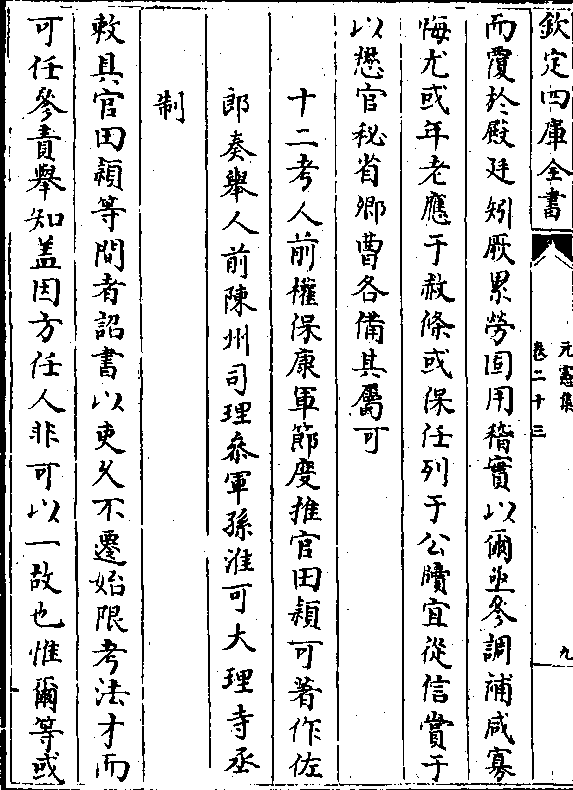 欽定四庫全書
元憲集
卷二十三
九
而覆於殿廷矧厥累勞固用稽實以爾並參調補咸寡
悔尤或年老應于赦條或保任列于公牘宜從信賞于
以懋官秘省卿曹各備其屬可
十二考人前權保康軍節度推官田穎可著作佐
郎奏舉人前陳州司理參軍孫淮可大理寺丞
制
敕具官田穎等間者詔書以吏久不遷始限考法才而
可任參責舉知蓋因方任人非可以一故也惟爾等或